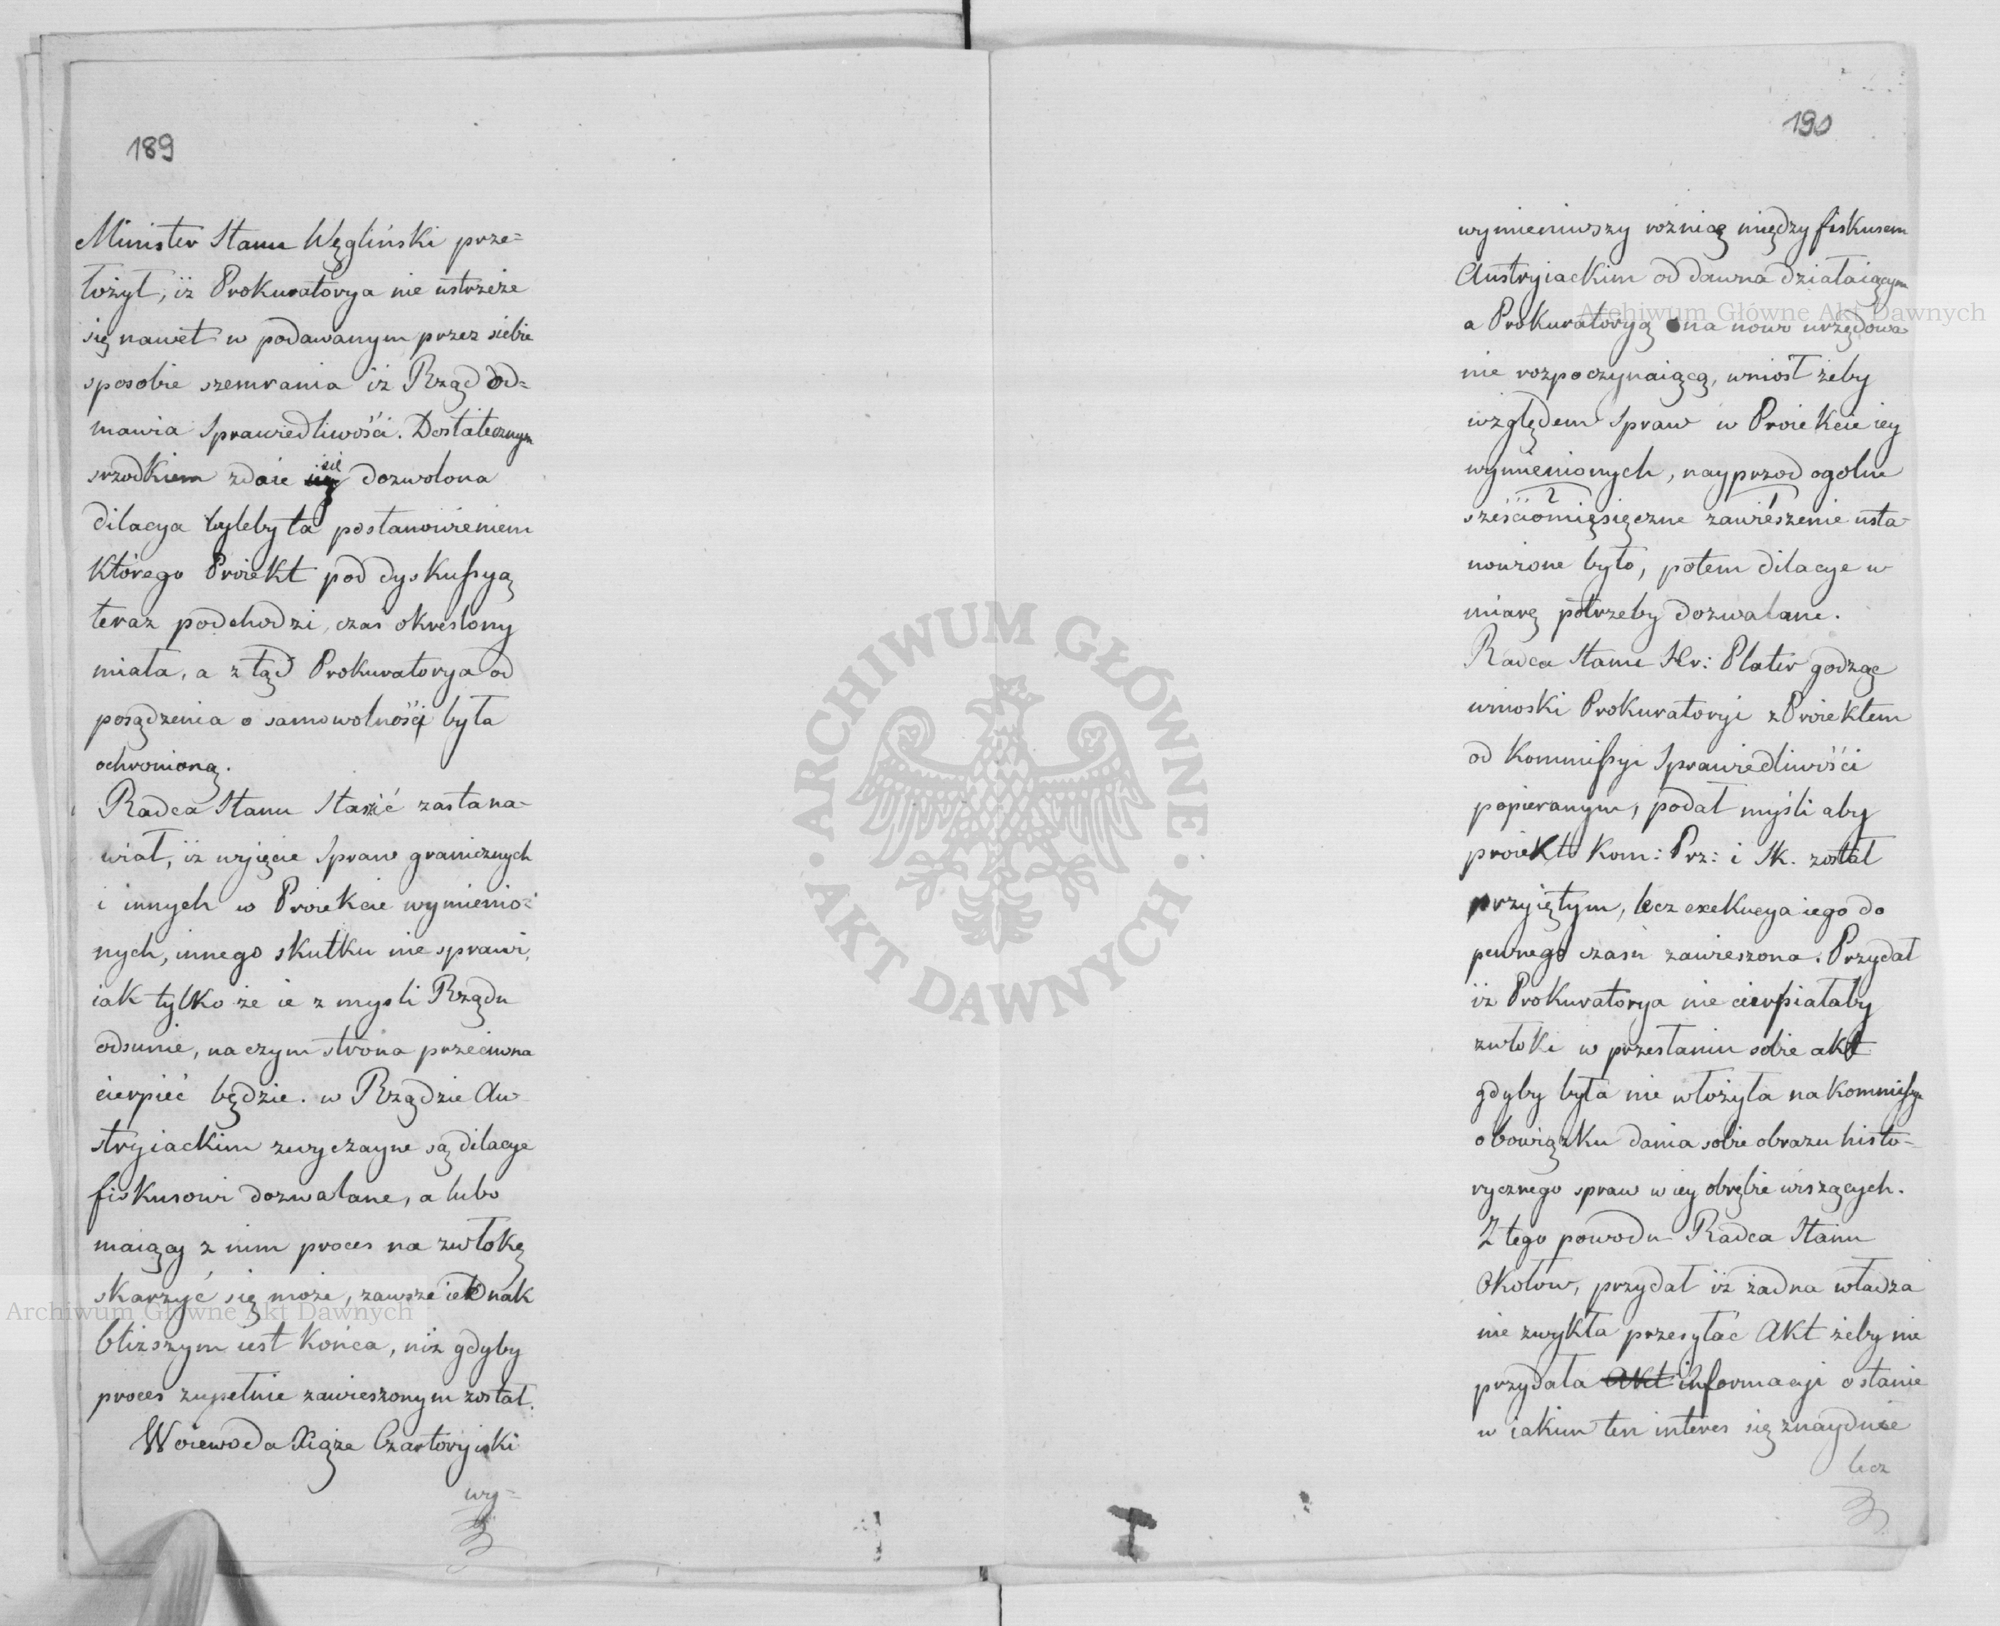 189
Minister Stanu Węgliński prze=
łożył, iż Prokuratorya nie ustrzeże
się nawet w podawanym przez siebie
sposobie szemrania iż Rząd od=
mawia Sprawiedliwości. Dostatecznym
srzodkiem zdaie się dozwolona
dilacya byleby ta postanowieniem
którego Proiekt pod dyskussyą
teraz podchodzi, czas okreslony
miała, a ztąd Prokuratorya od
posądzenia o samowolności była
ochronioną.
Radca Stanu Staszic zastana-
wiał, iż wyięcie Spraw granicznych
i innych w Proiekcie wymienio=
nych, innego skutku nie sprawi,
iak tylko że ie z mysli Rządu
odsunie, na czym strona przeciwna
cierpieć będzie. w Rządzie Au-
stryiackim zwyczayne są dilacye
fiskusowi dozwalane, a lubo
maiący z nim proces na zwłokę
skarżyć się może, zawsze iednak
bliższym iest końca, niż gdyby
proces zupełnie zawieszonym został.
Woiewoda Xiąże Czartoryiski
wy=
190
wymieniwszy rożnicę między fiskusem
Austryiackim od dawna działaiącym
a Prokuratoryą na nowo urzędowa
nie rozpoczynaiącą, wniosł żeby
względem Spraw w Proiekcie iey
wymienionych, nayprzod ogolne
sześciomięsięczne zawieszenie usta-
nowione było, potem dilacye w
miarę potrzeby dozwalane.
Radca Stanu Hr: Plater godząc
wnioski Prokuratoryi z Proiektem
od Kommissyi Sprawiedliwości
popieranym, podał myśli aby
proiekt Kom: Prz: i Sk. został
przyiętym, lecz exekucya iego do
pewnego czasu zawieszona. Przydał
iż Prokuratorya nie cierpiałaby
zwłoki w przesłaniu sobie akt
gdyby była nie włożyła na Kommissye
obowiązku dania sobie obrazu histo-
rycznego spraw w iey obrębie wiszących.
Z tego powodu Radca Stanu
Okołow, przydał iż żadna władza
nie zwykła przesyłać Akt żeby nie
przydała Akt informacyi o stanie
w iakim ten interes się znayduie
lecz
ARCHIWUM GŁÓWNE AKT DAWNYCH
Archiwum Główne Akt Dawnych
Archiwum Główne Akt Dawnych